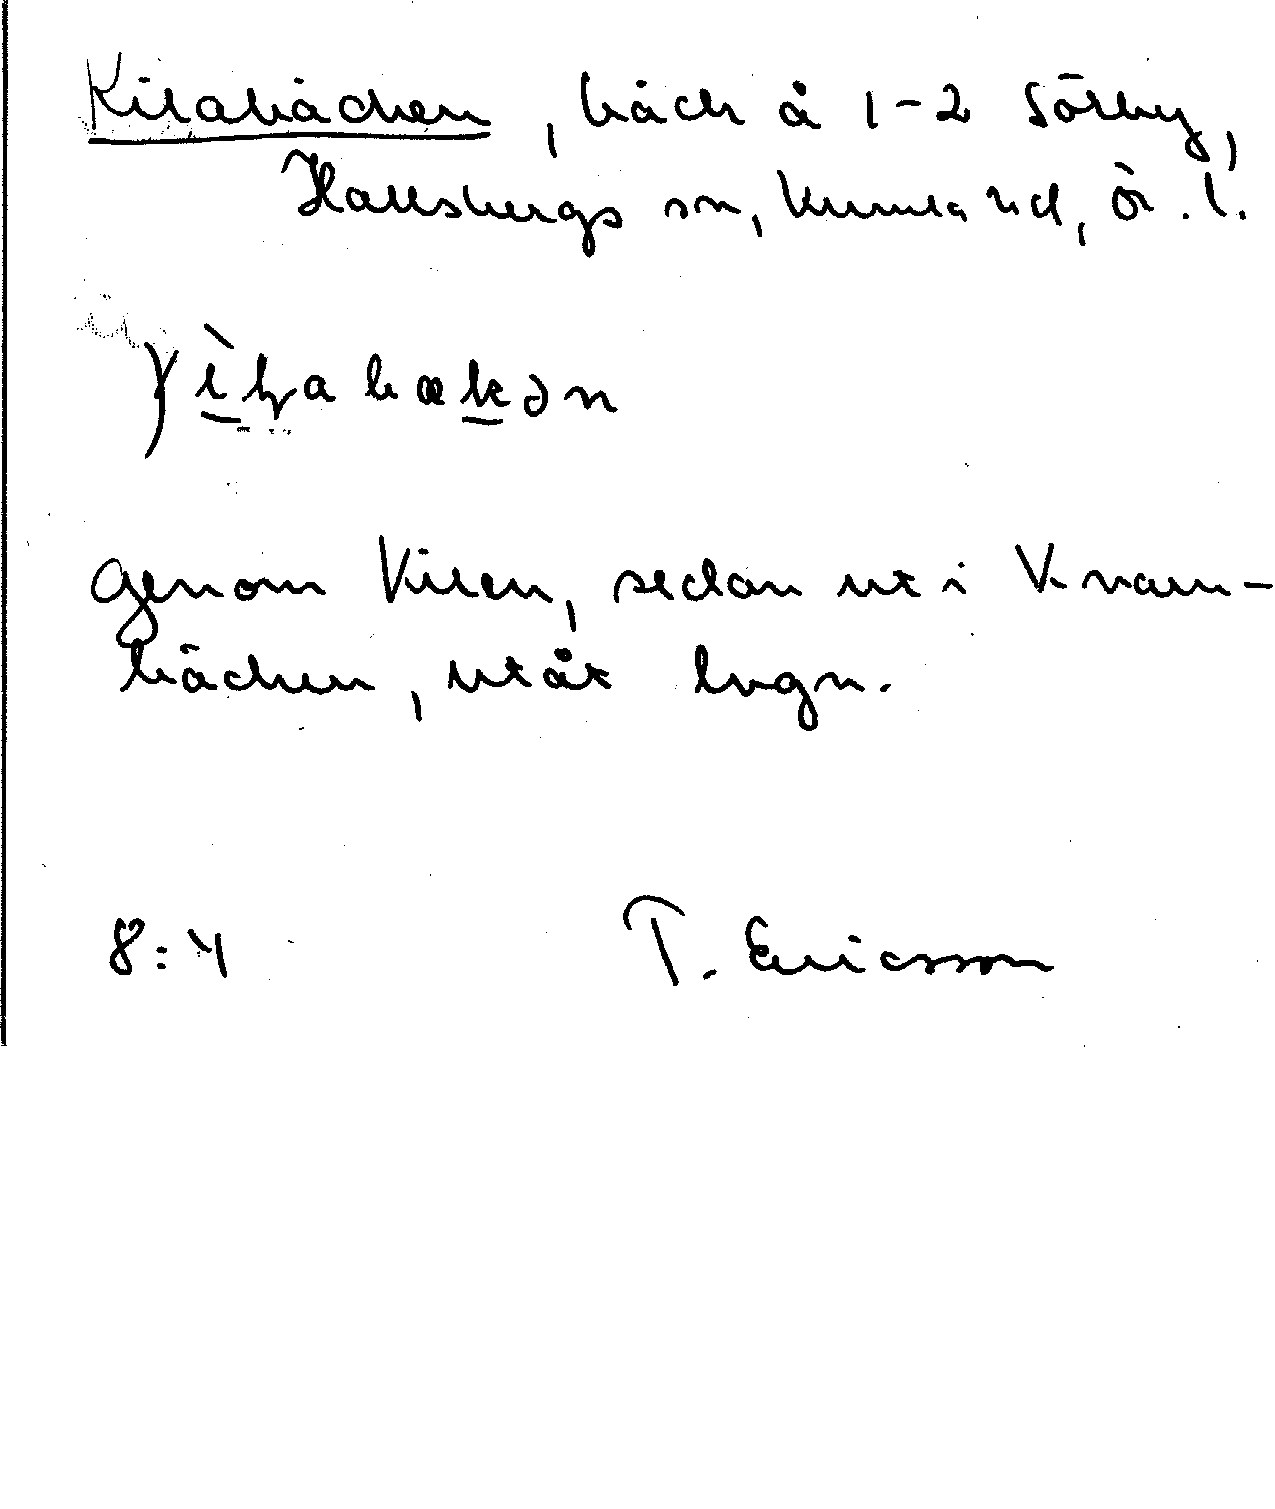 Kilabäcken, bäck å 1-2 Sörby,
Hallsbergs sn, Kumla hd, Ör. l.
genom Kilen, sedan ut i Kvarn-
bäcken, utåt lugn.
8:4 T. Ericsson